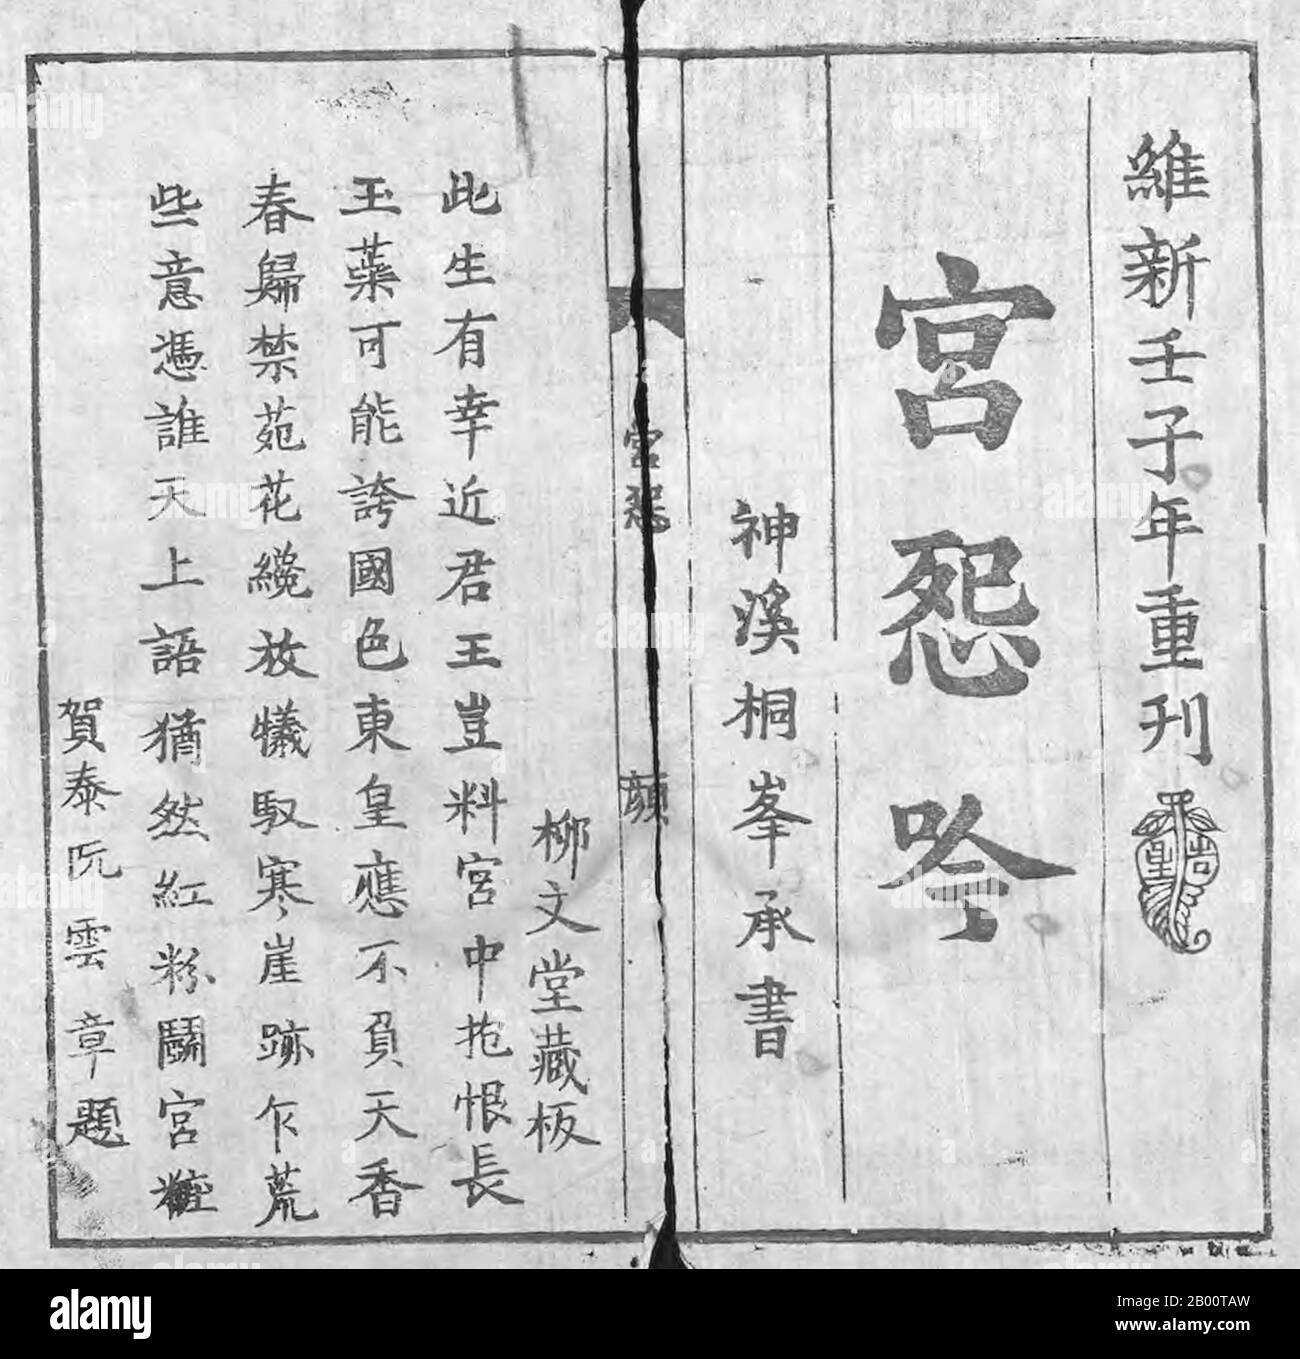 維新壬子年重刊
宮怨吟
神溪桐峯承書
宮怨
顏
柳文堂藏板
此生有幸近君王豈料宮中抱恨長
玉蘂可能誇國色東皇應不負天香
春歸禁苑花纔放犧馭寒崖跡乍荒
些意憑誰天上語猶然紅粉鬪宮粧
賀泰阮雲章題
alamy
Image ID: 2B00TAW
www.alamy.com